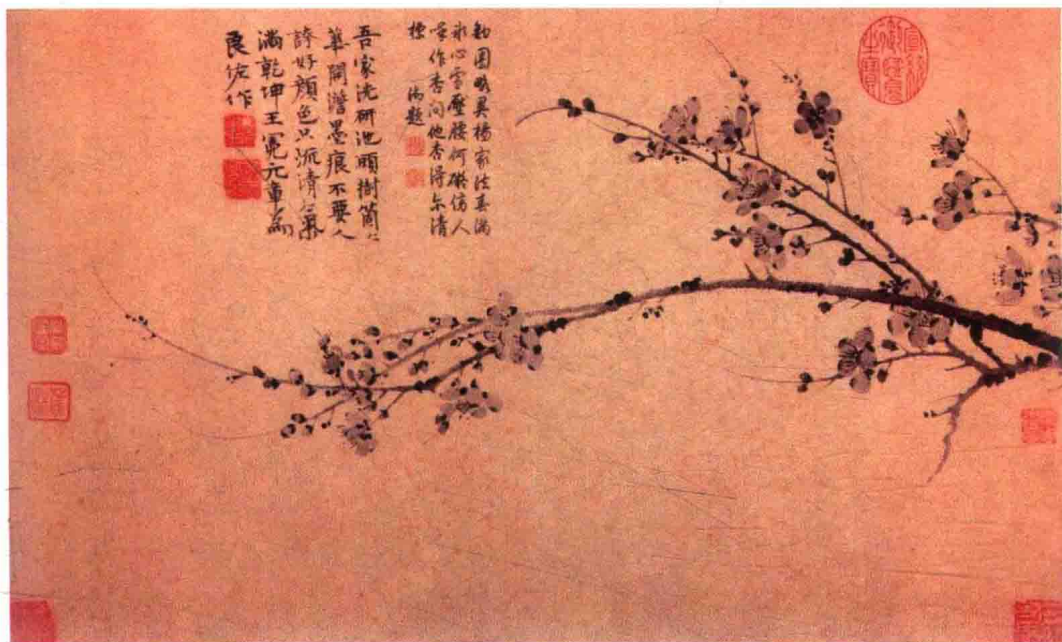 宣統御覽之寶
鉤圈畧異楊家法春滿
冰心雪壓腰何礙傍人
喚作杏問他杏得尔清
標 御題
吾家洗研池頭樹箇〻
華開澹墨痕不要人
誇好顏色只流清氣
滿乾坤王冕元章為
良佐作